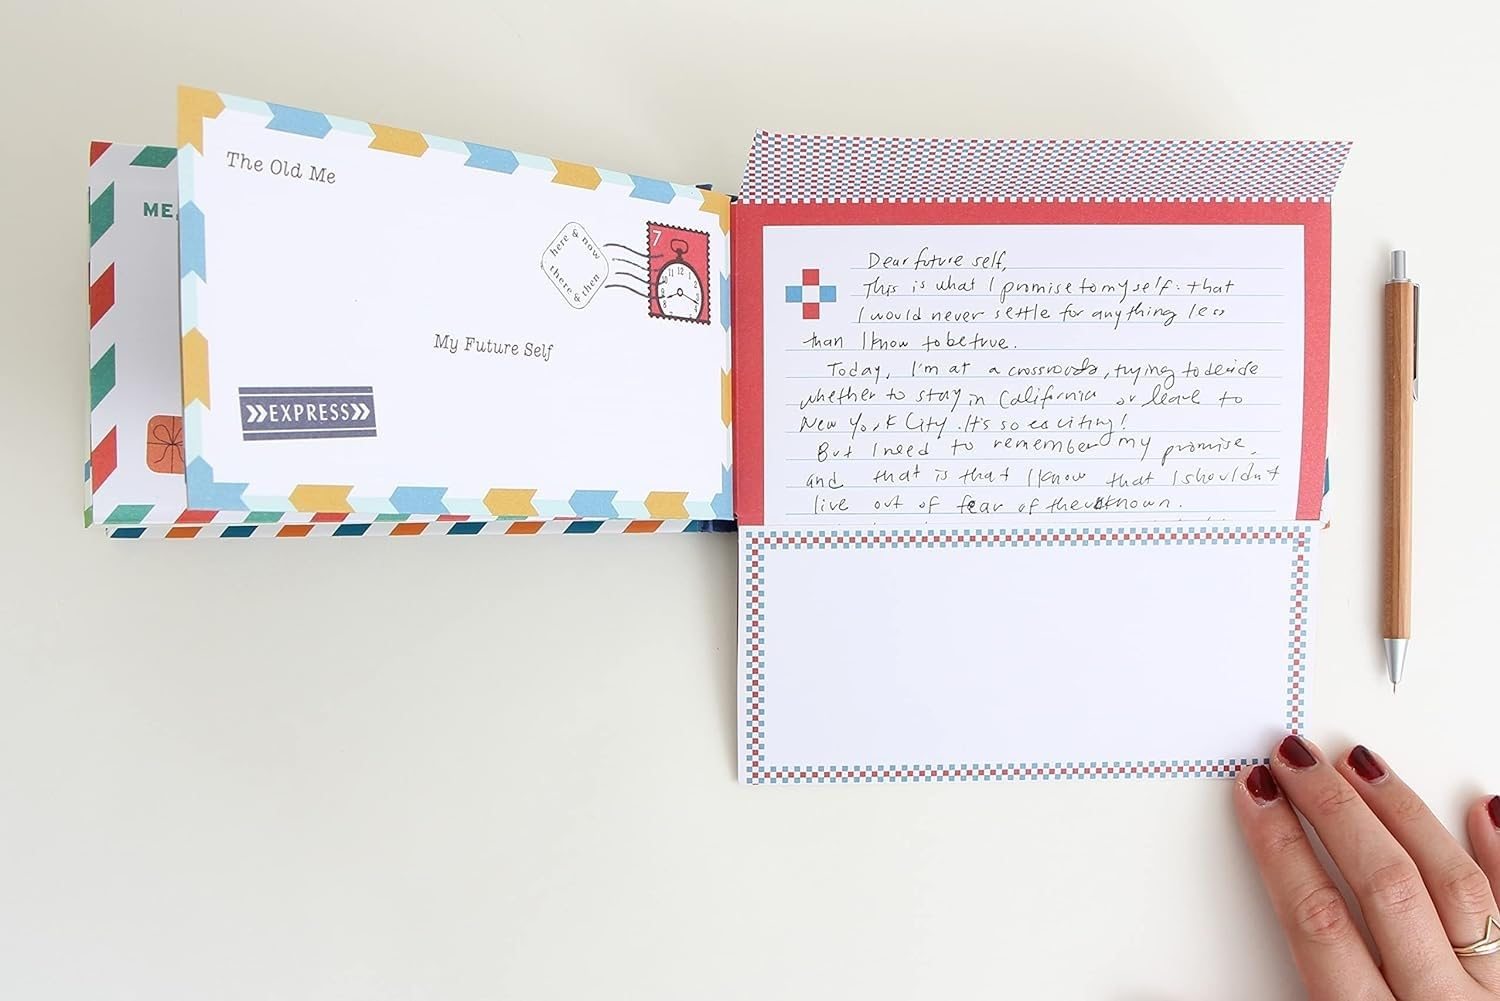 The Old Me
ME
here & now
there & then
7
12
My Future Self
»EXPRESS»
Dear future self,
This is what I promise to myself: that
I would never settle for anything less
than I know to be true.
Today, I'm at a crossroads, trying to decide
whether to stay in California or leave to
New York City. It's so exciting!
But I need to remember my promise,
and that is that I know that I shouldn't
live out of fear of the unknown.